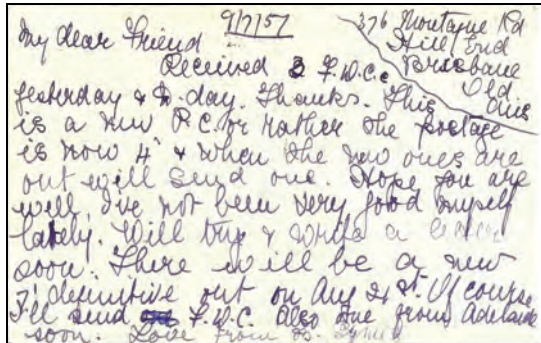 9/7/57
376 Montague Rd
Hill End
Brisbane
Qld
Aus
My dear Friend
Received 3 F.W.C.s
yesterday & to.day. Thanks. This
is a new P.C. or rather the postage
is now 4ᵈ & when the new ones are
out will send one. Hope you are
well, I've not been very good myself
lately. Will try & write a letter
soon. There will be a new
7ᵈ definitive out on Aug 21st. Of course
I'll send F.W.C. Also one from Adelaide
soon. Love from